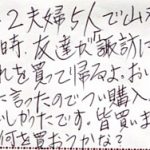 と2夫婦5人で山
時、友達が諏訪に
れを買って帰るよ。おい
と言ったのでつい購入。
しかったです。皆買いま
何を買おうかな?